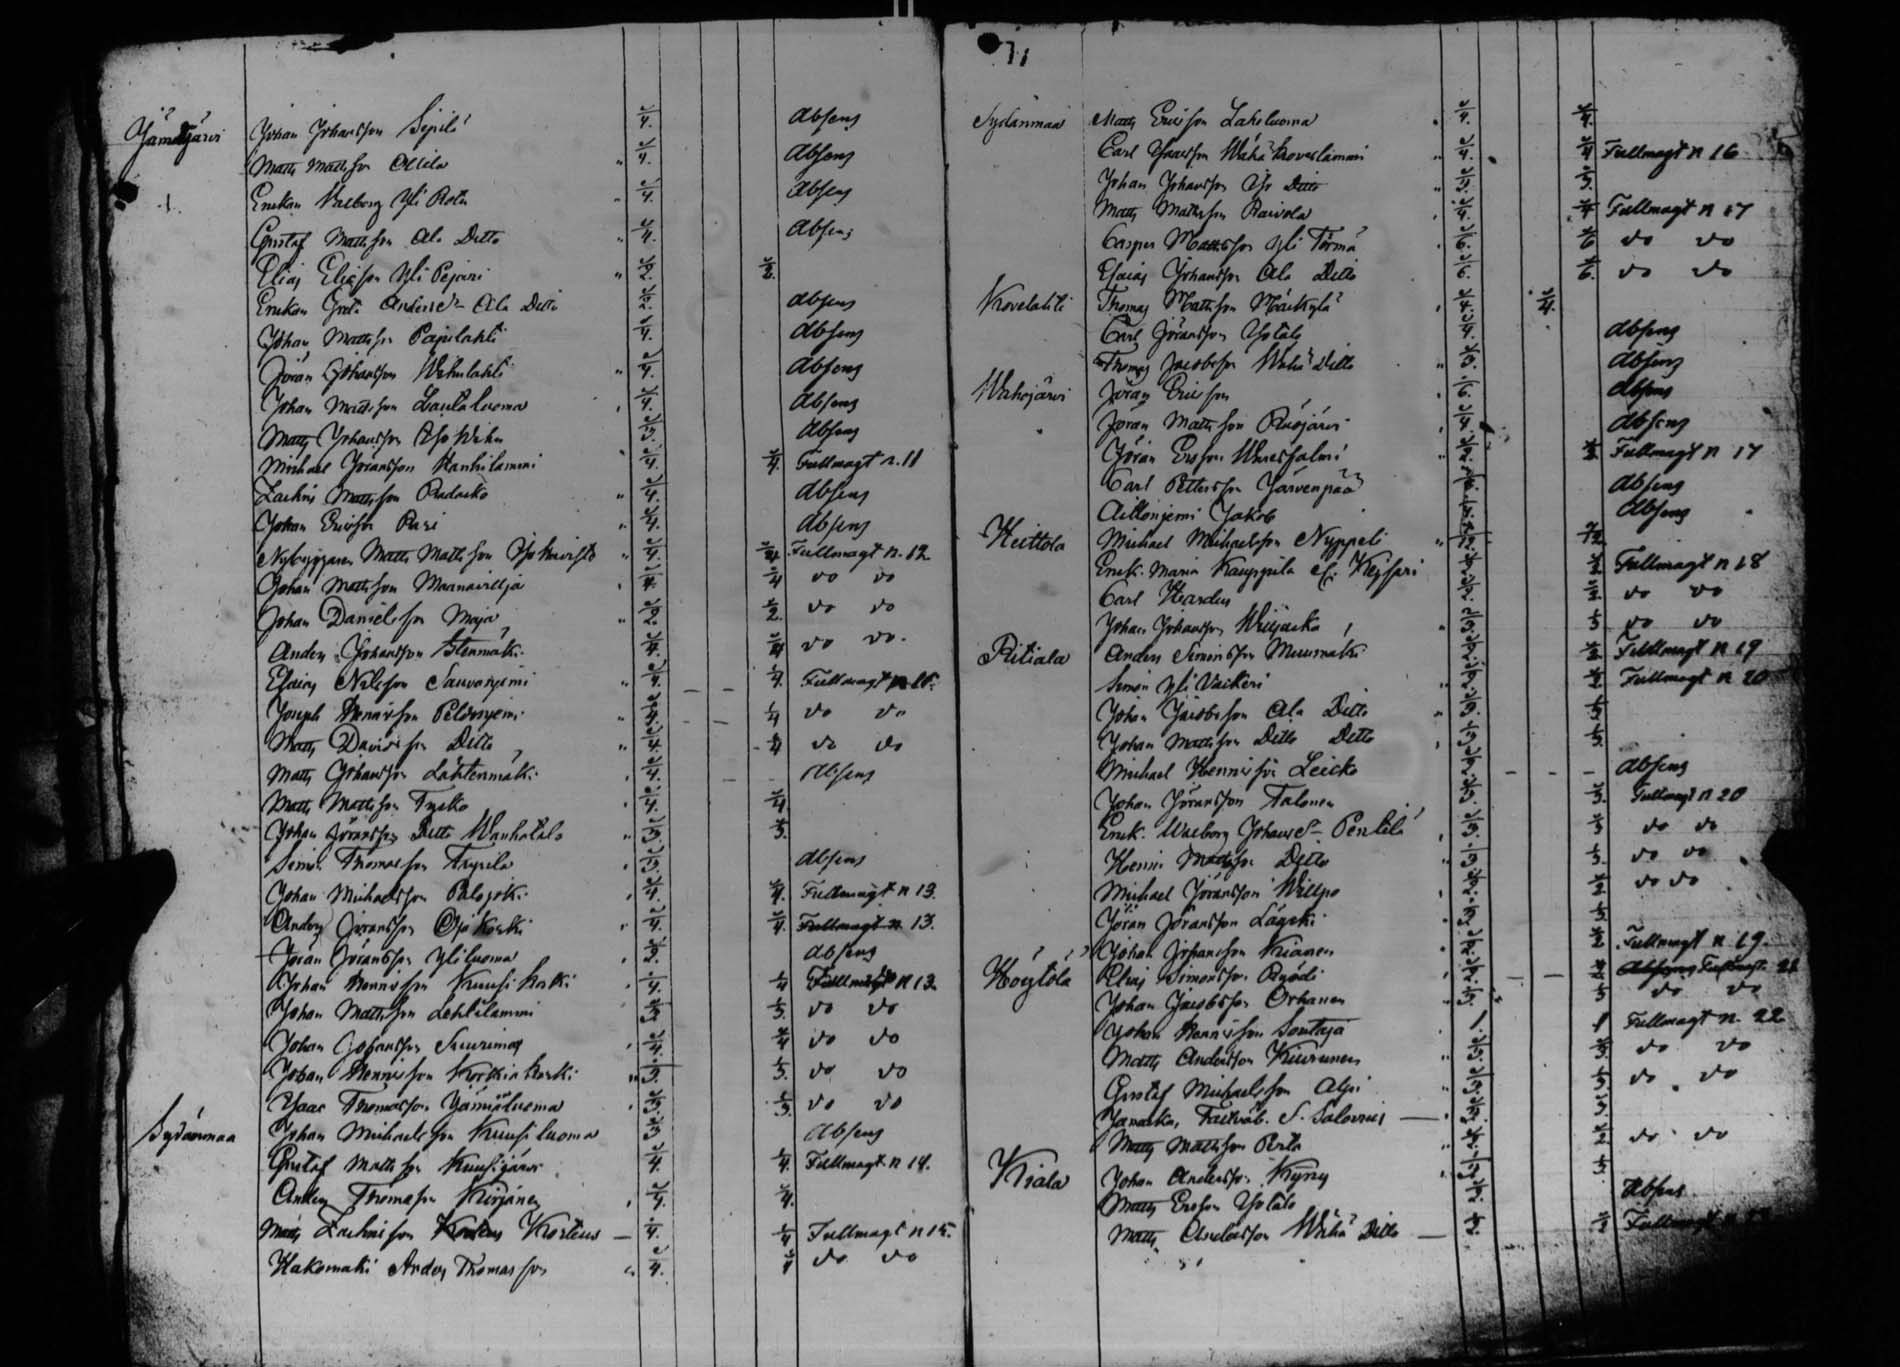 Jämijärvi Johan Johansson Sipilä 2/4. Absens
Matts Mattsson Ollila " 2/4. Absens
Enekan Walborg Yli Rotu " 2/4. Absens
Gustaf Mattsson Ala Ditto " 2/4. Absens
Elias Eliasson Yli Pejari " 2/2. 2/2.
Enekan Greta Anders Dr Ala Ditto 2/2. absens
Johan Mattsson Papilahti 2/4. Absens
Jöran Johansson Wihulahti " 2/4. Absens
Johan Mattsson Lautaluoma 2/4. Absens
Matts Johansson Iso Wihu 2/3. Absens
Michael Joransson Kauhilammi 2/4. 2/4. Fullmagt n. 11
Zachris Mattsson Rudanko " 2/4. Absens
Johan Ericsson Pasi " 2/4. Absens
Nybyggaren Matts Mattsson Isokoivisto " 2/4. 2/4. Fullmagt n. 12
Johan Mattsson Maanawilja 2/4. 2/4 do do
Johan Danielsson Maja " 2/2. 2/2. do do
Anders Johansson Stenmäki 2/4. 2/4 do do.
Esaias Nilsson Sauvonjemi " 2/4. 1/4. Fullmagt n
Joseph Henrisson Peldonjemi " 2/4. 1/4 do do
Matts Davidsson Ditto " 2/4. 1/4 do do
Matts Johansson Lähtenmäki 2/4. Absens
Matts Mattsson Tysko 2/4. 2/4
Johan Jöransson Ditto Wanhatalo " 2/3 2/3.
Simon Thomasson Tryila 2/3. absens
Johan Michaelsson Palojoki 2/4. 2/4. Fullmagt n 13.
Anders Joransson Oja Koski 2/4. 2/4 Fullmagt n. 13.
Jöran Jöransson Yliluoma 2/2. absens
Johan Henrisson Kuusikoski 1/4. 1/4 Fullmagt n 13
Johan Mattsson Lehtilammi 2/3 1/3. do do
Johan Johansson Suurimaa 2/4. 2/4 do do
Johan Henrisson Korkiakoski " 1/3. 1/3. do do
Isaac Thomasson Jämiäluoma 2/3. 1/3. do do
Sydänmaa Johan Michaelsson Kuusiluoma 2/3 absens
Gustaf Mattsson Kuusijärvi 2/4. 1/4. Fullmagt n 14.
Anders Thomasson Kirjänen 2/4. 2/4.
Matts Zachrisson Kortens 1/4. 1/4 Fullmagt n 15.
Hakomäki Anders Thomasson 2/4. 2/4 do do
71
Sydänmaa Matts Ericsson Lakeluoma 2/4. 2/4.
Carl Isacsson Wähä Koveslammi " 2/4. 2/4 Fullmagt n 16
Johan Johansson Iso Ditto " 2/3. 2/3.
Matts Mattsson Raivola 2/4. 2/4 Fullmagt n 17
Casper Mattsson Yli Törmä 2/6. 2/6 do do
Esaias Johansson Ala Ditto 2/6. 2/6. do do
Kovelahti Thomas Mattsson Mäkkylä 2/4. 2/4.
Carl Jöransson Isotalo 2/4. absens
Thomas Jacobsson Wähä Ditto 2/3. absens
Wahojärvi Jöran Ericsson 1/6. absens
Jöran Mattsson Riuojärvi 1/4 Absens
Jöran Ersson Waressalmi 2/2. 2/2 Fullmagt n 17
Carl Pettersson Järvenpää absens
Aittonjemi Jakob Absens
Heittola Michael Michaelsson Nyppeli
Enek. Maria Kauppila el. Keijsari 2/2 Fullmagt n 18
Carl Hardus 2/2. 2/2. do do
Johan Johansson Wäljäaho 2/3. 1/3 do do
Ritiala Anders Simonsson Muumäki 2/2. 2/2 Fullmagt n 19
Simon Yli Vaikeri 2/2 2/2 Fullmagt n 20
Johan Jacobsson Ala Ditto 1/3. 1/3
Johan Mattsson Ditto Ditto 1/3 1/3.
Michael Hennisson Leicko 2/2 absens
Johan Jöransson Talonen 2/3. 2/3. Fullmagt n 20
Enek. Walborg Johans Dr Pentilä 2/3. 2/3 do do
Henric Mattsson Ditto 1/3 1/3. do do
Michael Jöransson Willpo 2/2. 2/2 do do
Jöran Jöransson Lägski 1/3.
Johan Johansson Kianen 2/2 2/2 Fullmagt n 19.
Höytölä Elias Simonsson Ryödi 2/2. 2/2 Absens Fullmagt 21
Johan Jacobsson Orhanen 1/3. 1/3 do do
Johan Henrisson Sontaja 1. 1 Fullmagt n. 22
Matts Andersson Kiurunen 2/3. 2/3. do do
Gustaf Michaelsson Alpi 1/3. 1/3. do do
Jamska, Fältwäb. S. Salovius
Matts Mattsson Perla 2/2. 2/2 do do
Kiala Johan Andersson Kyny 1/3 1/3.
Matts Ersson Isotalo 2/2. Absens
Matts Andersson Wähä Ditto 1/2. 1/2 Fullmagt n